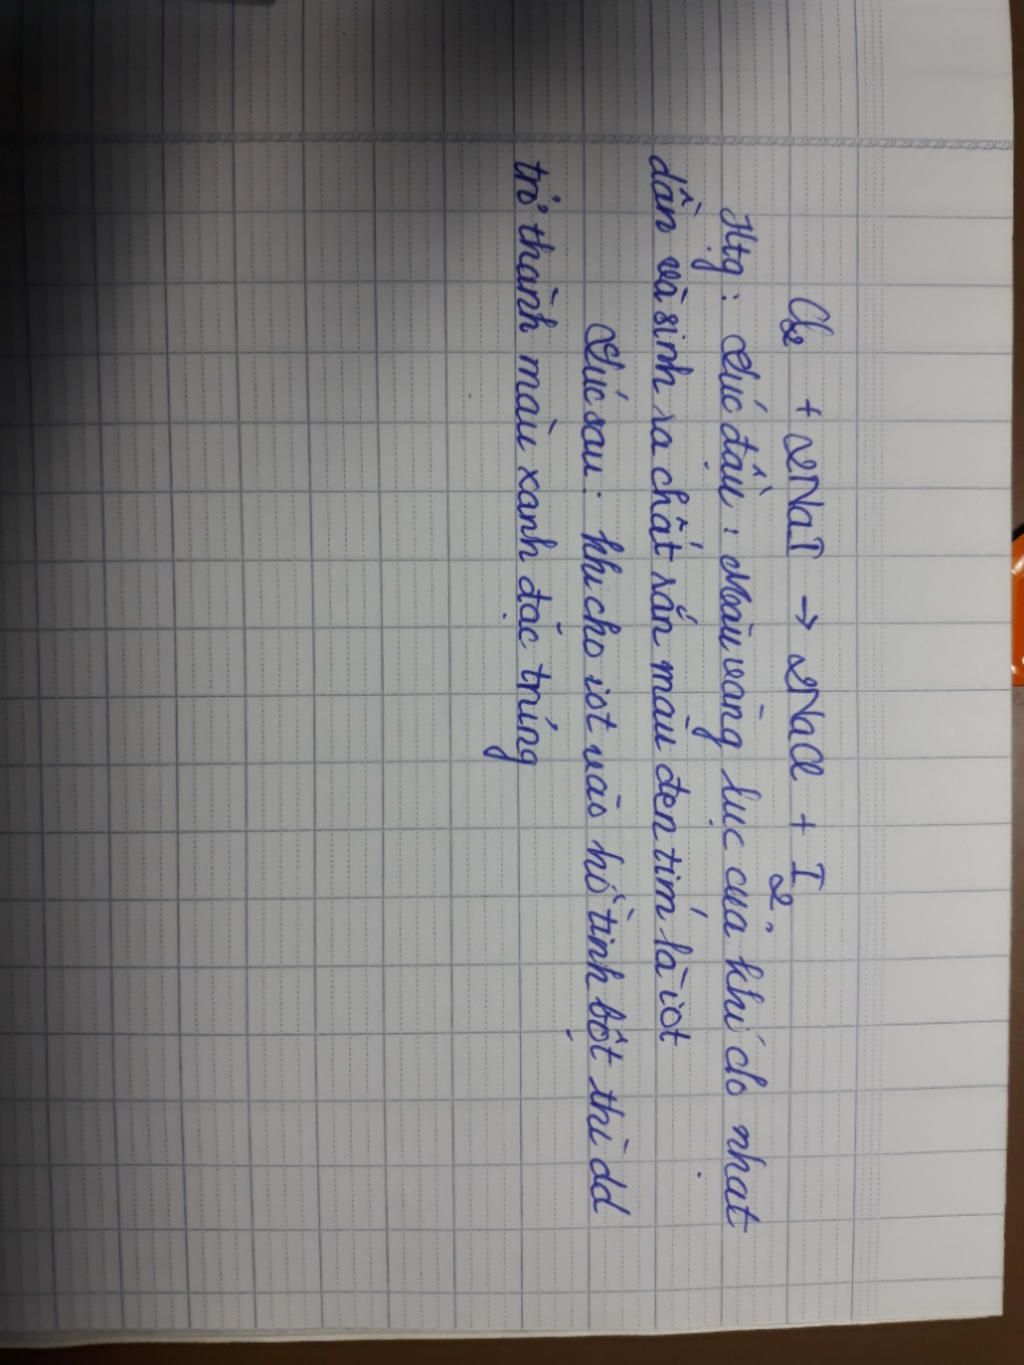 Cl₂ + 2NaI → 2NaCl + I₂
Htg: Lúc đầu: Màu vàng lục của khí clo nhạt
dần và sinh ra chất rắn màu đen tím là iot
Lúc sau: khi cho iot vào hồ tinh bột thì dd
trở thành màu xanh đặc trưng